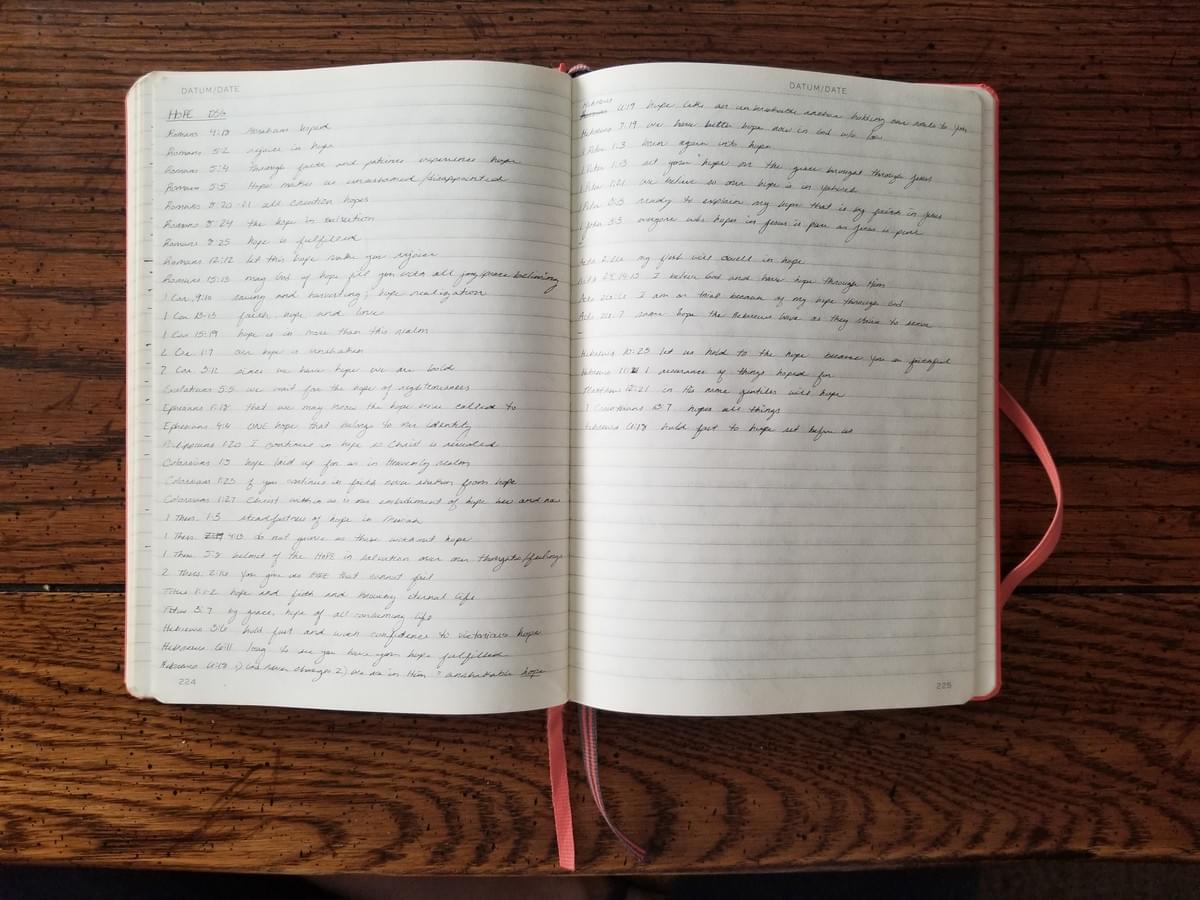 DATUM/DATE
HOPE
Romans 4:18 Abraham hoped
Romans 5:2 rejoice in hope
Romans 5:4 through faith and patience experience hope
Romans 5:5 Hope makes us unashamed/disappointed
Romans 8:20-21 all creation hopes
Romans 8:24 the hope in salvation
Romans 8:25 hope is fulfilled
Romans 12:12 let this hope make you rejoice
Romans 15:13 may God of hope fill you with all joy, peace
1 Cor. 9:10 sowing and harvesting; hope realization
1 Cor 13:13 faith, hope and love
1 Cor 15:19 hope is in more than this realm
2 Cor. 1:7 our hope is unshaken
2 Cor. 3:12 since we have hope we are bold
Galatians 5:5 we wait for the hope of righteousness
Ephesians 1:18 that we may know the hope we're called to
Ephesians 4:4 ONE hope that belongs to our identity
Philippians 1:20 I continue in hope as Christ is revealed
Colossians 1:5 hope laid up for us in Heavenly realm
Colossians 1:23 if you continue in faith never shaken from hope
Colossians 1:27 Christ within us is our embodiment of hope
1 Thess. 1:3 steadfastness of hope in
1 Thess. 4:13 do not grieve as those without hope
1 Thess 5:8 helmet of the HOPE in salvation over our thoughts/feelings
2 Thess. 2:16 you give us HOPE that cannot fail
Titus 1:1-2 hope and faith and knowing eternal life
Titus 3:7 by grace, hope of all consuming life
Hebrews 3:6 hold fast and with confidence to victorious hope
Hebrews 6:11 long to see you have your hope fulfilled
Hebrews 6:18 1) God never changes 2) We are in Him = unshakable hope
224
DATUM/DATE
Hebrews
6:19 hope like an unbreakable anchor holding our souls to You
Hebrews 7:19 we have better hope now in God
1 Peter 1:3 born again into hope
1 Peter 1:13 set your hope on the grace brought through Jesus
1 Peter 1:21 we believe so our hope is in
1 Peter 3:15 ready to explain my hope that is by faith in Jesus
1 John 3:3 everyone who hopes in Jesus is pure as Jesus is pure
Acts 2:26 my flesh will dwell in hope
Acts 24:14-15 I believe God and have hope through Him
Acts 26:6 I am on trial because of my hope through God
Acts 26:7 same hope the Hebrews have as they strive to serve
Hebrews 10:23 let us hold to the hope because You are faithful
Hebrews 11:1 assurance of things hoped for
Matthew 12:21 in His name gentiles will hope
1 Corinthians 13:7 hopes all things
Hebrews 6:18 hold fast to hope set before us
225